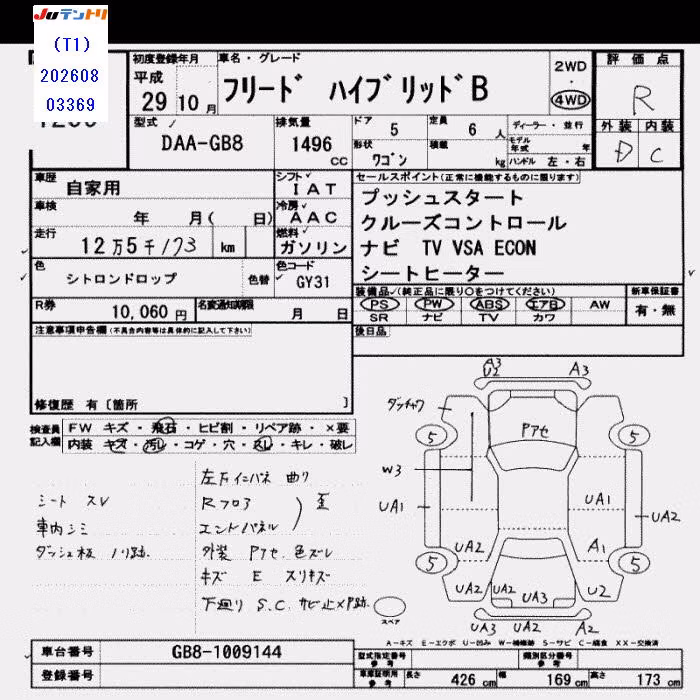 JUテントリ
(T1)
202608
03369
初度登録年月
平成
29 10 月
車名・グレード
フリード ハイブリッドB
2WD
・
4WD
評価点
R
外装 内装
D C
型式
DAA-GB8
排気量
1496
CC
ドア 5
定員 6 人
形状 ワゴン
積載 kg
ディーラー・並行
モデル年式 年
ハンドル 左・右
車歴 自家用
シフト IAT
車検 年 月( 日)
冷房 AAC
走行 12万5千173 km
燃料 ガソリン
色 シトロンドロップ 色替
色コード GY31
R券 10,060 円
名変通知期限 月 日
セールスポイント(正常に機能するものに限ります)
プッシュスタート
クルーズコントロール
ナビ TV VSA ECON
シートヒーター
装備品(純正品に限り○をつけてください)
PS PW ABS エアB AW
SR ナビ TV カワ
新車保証書
有・無
後日品
注意事項申告欄(不具合内容等は具体的に記入して下さい)
修復歴 有〔箇所 〕
検査員記入欄
FW キズ・飛石・ヒビ割・リペア跡・×要
内装 キズ・汚レ・コゲ・穴・スレ・キレ・破レ
シート スレ
車内シミ
ダッシュ板 ノリ跡.
左右インパネ 曲り
Rフロア
エンドパネル
歪
外装 Pアセ、色ズレ
キズ E スリキズ
下廻り S.C.サビ止メP跡.
A3
U2
A3
ダッチャク
5
5
Pアセ
W3
UA1
UA1
UA2
UA2
A1
5
5
UA2
UA2
UA3
U2
UA3
UA2
A2
スペア
A-キズ E-エクボ U-凹み W-補修跡 S-サビ C-腐食 XX-交換済
車台番号 GB8-1009144
登録番号
型式指定番号
参考
類別区分番号
参考
車庫証明用
参考
長さ 426 cm
幅 169 cm
高さ 173 cm